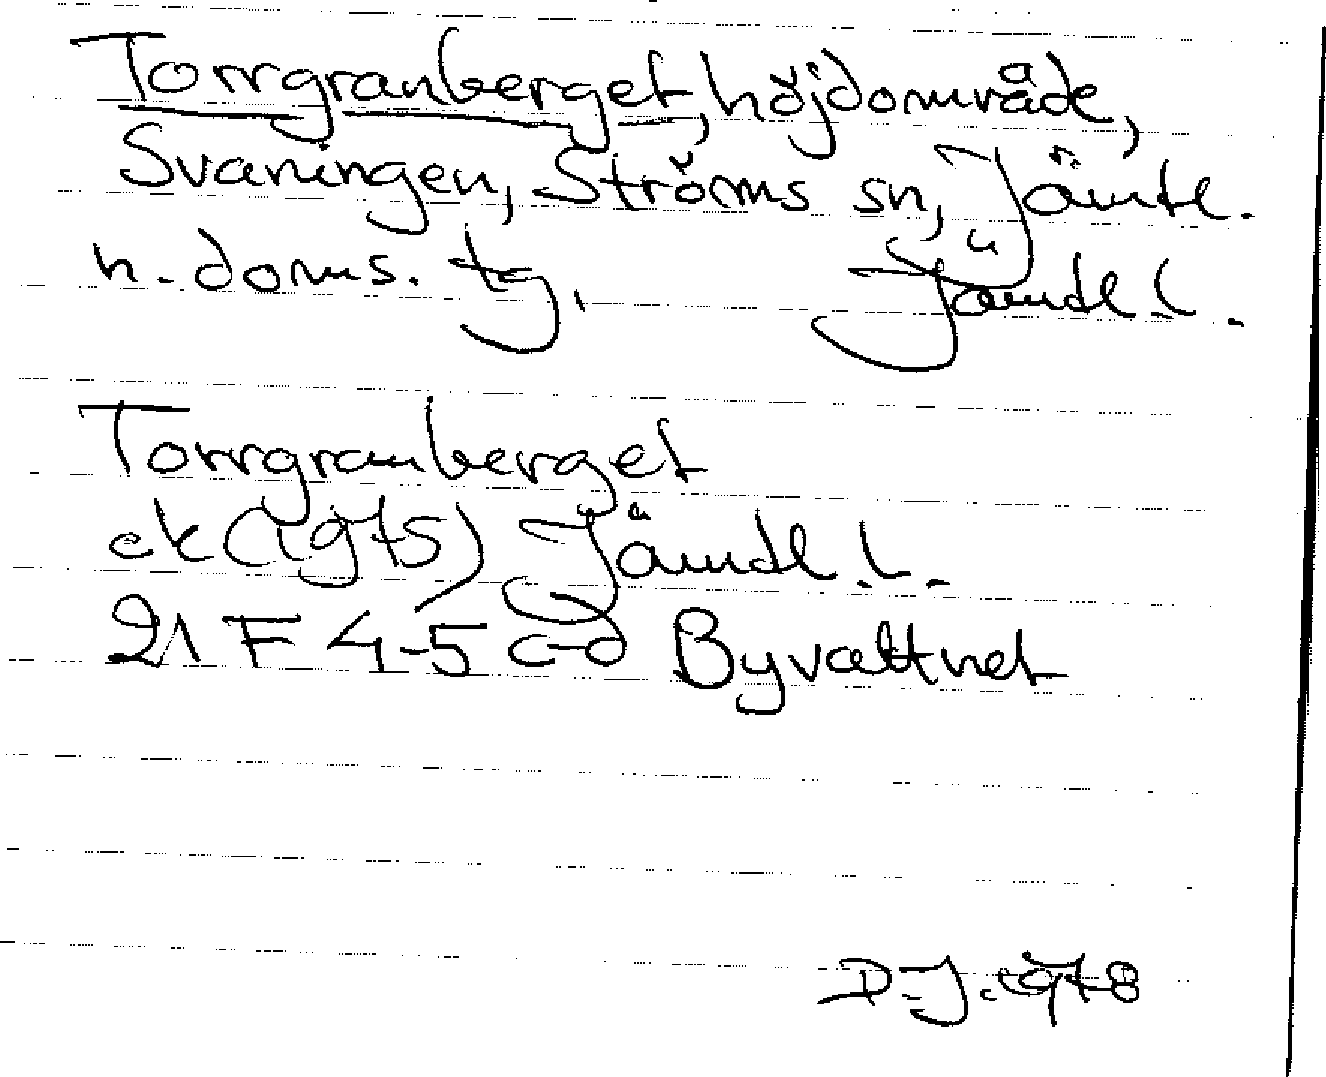 Torrgranberget, höjdområde,
Svaningen, Ströms sn, Jämtl.
n. doms. tg. Jämtl. l.
Torrgranberget
ek (1975) Jämtl. l.
21 F 4-5 c-d Byvattnet
D. J. 1978